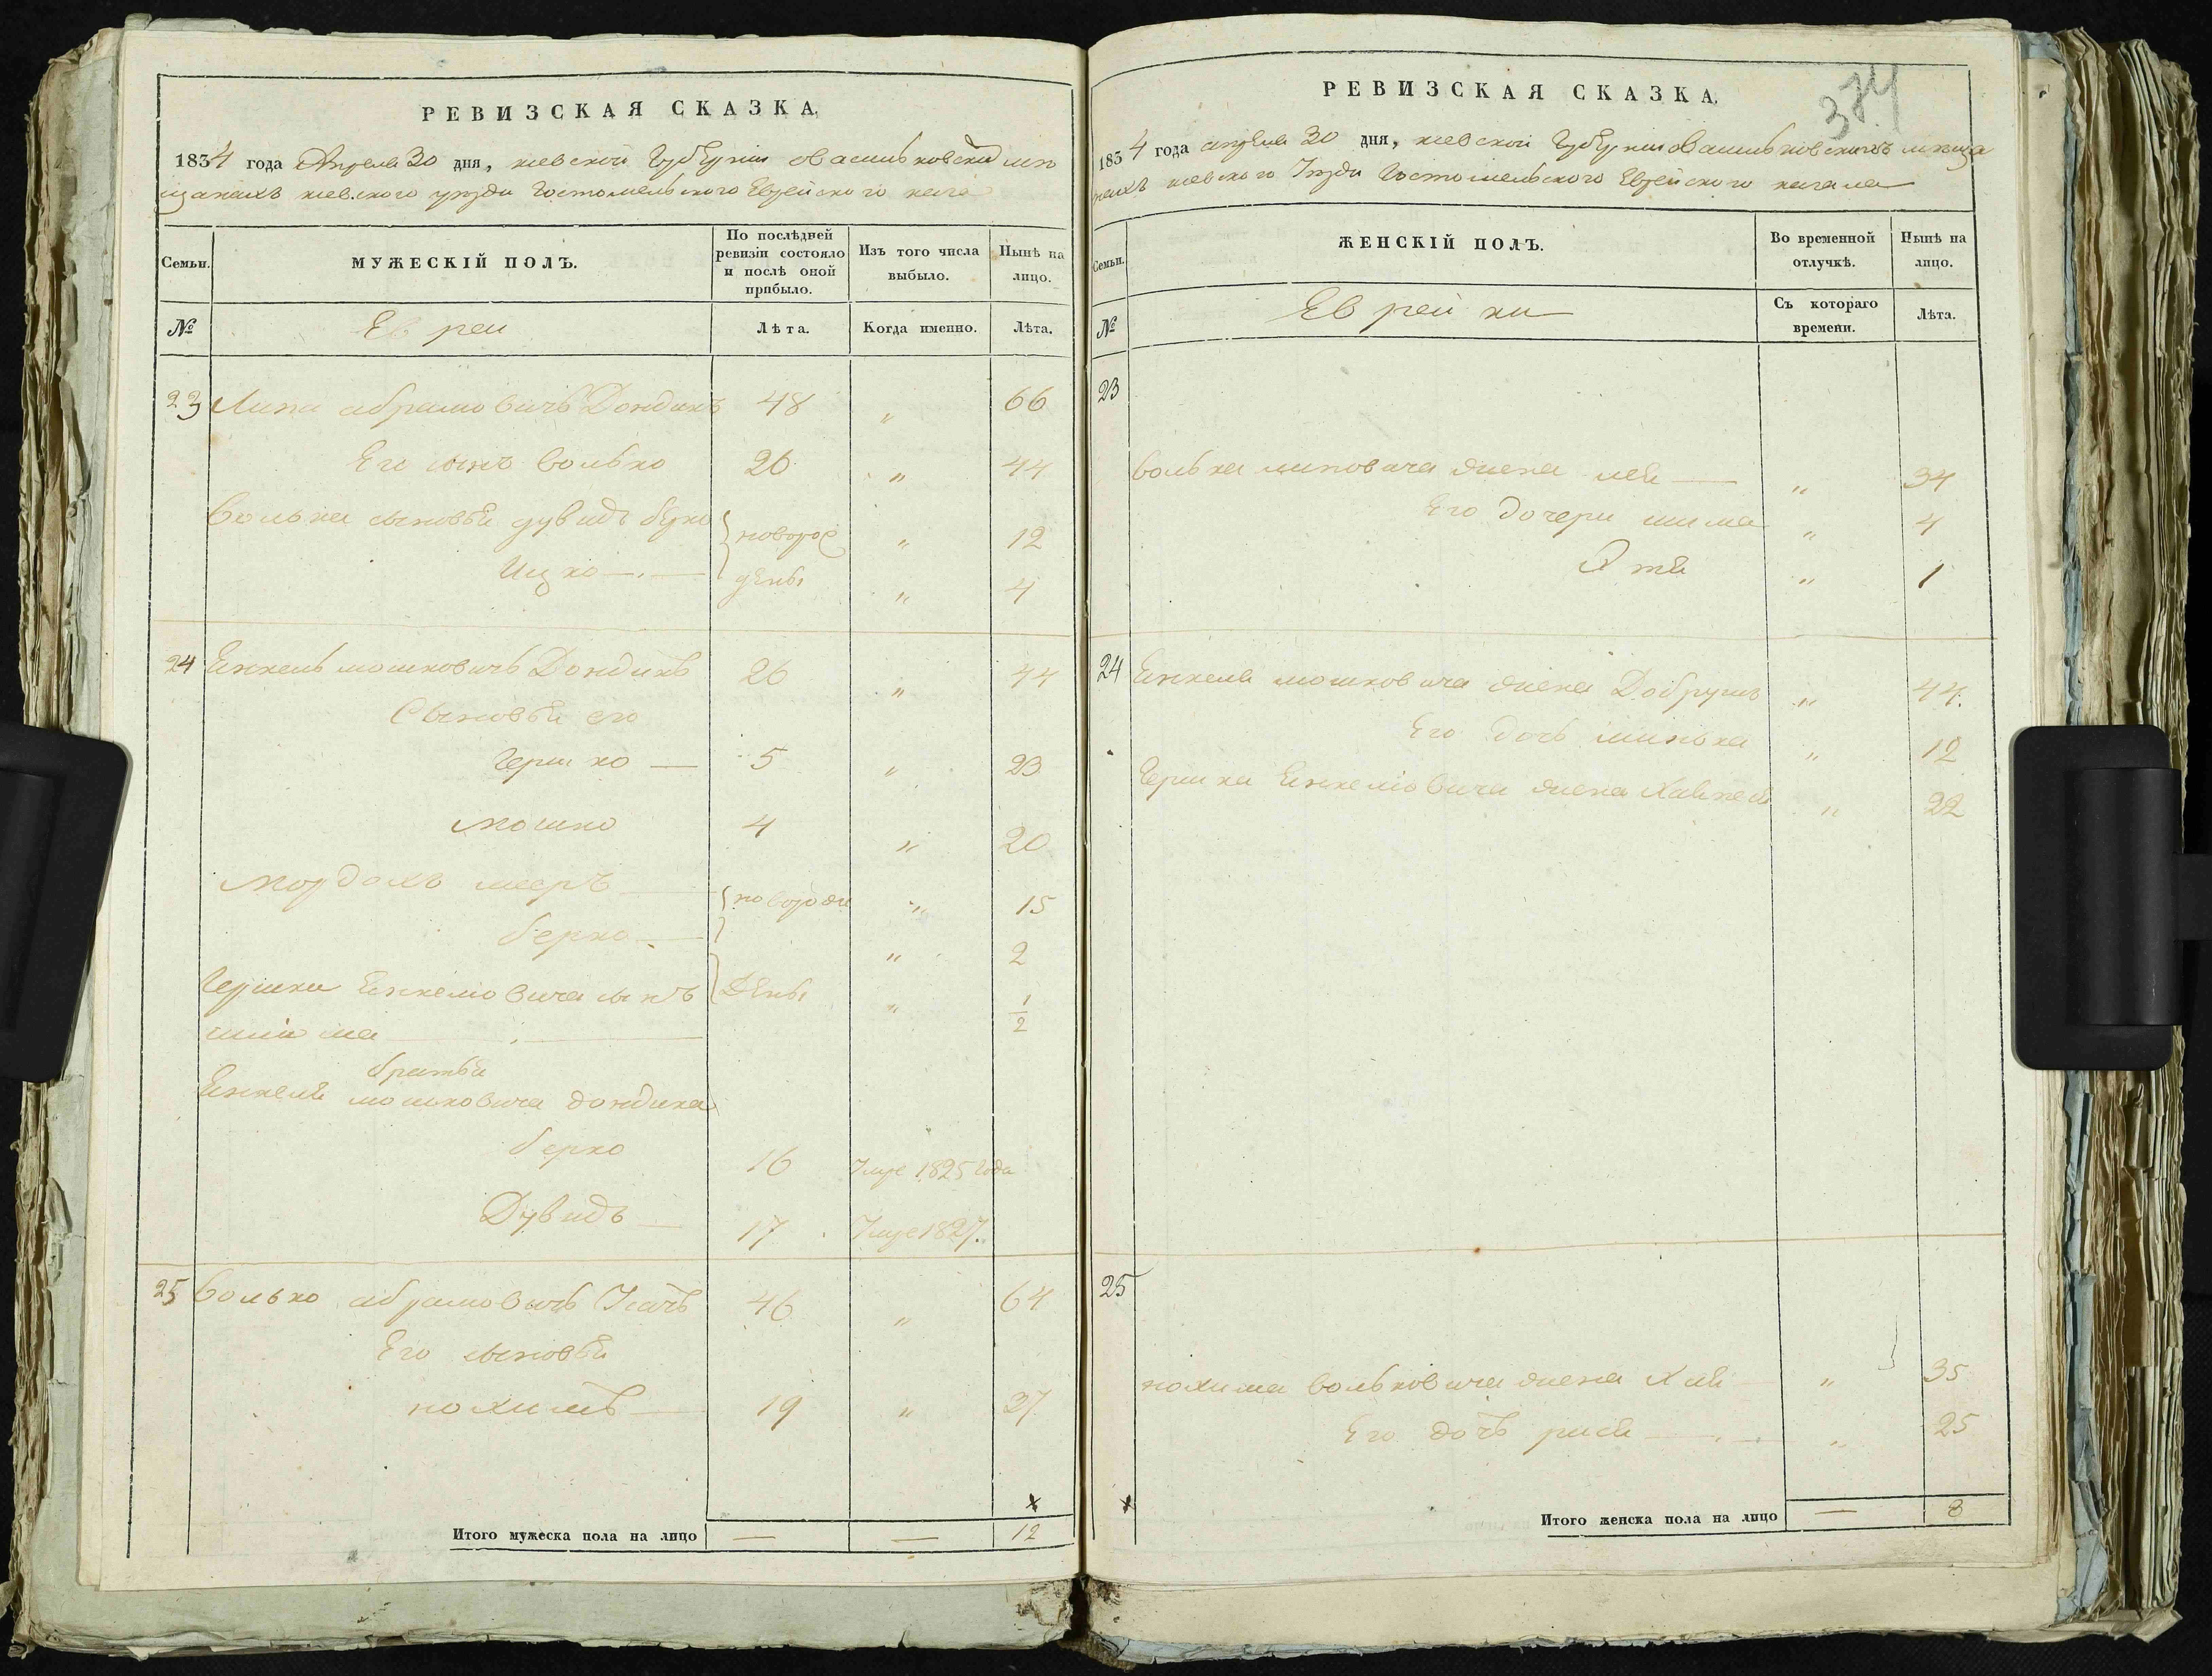 РЕВИЗСКАЯ СКАЗКА,
1834 года Апреля 30 дня, киевской Губернии овасильковский мѣ
щанахъ киевского уѣзда Гостомельского Еврейского кага
Семьи.
МУЖЕСКІЙ ПОЛЪ.
По послѣдней ревизіи состояло и послѣ оной прибыло.
Изъ того числа выбыло.
Нынѣ на лицо.
№
Евреи
Лѣта.
Когда именно.
Лѣта.
23 Липа абрамовичъ Дондикъ 48 " 66
Его сынъ волько 26 " 44
Волька сыновья дувидъ берко новорож " 12
Ицко дены " 4
24 Енкель мошковичъ Дондикъ 26 " 44
Сыновья его
Гершко 5 " 23
мошко 4 " 20
мордохъ мееръ новорож " 15
берко " 2
Гершки Енкелiовича сынъ Дены " 1/2
шлиома
братья
Енкеля мошковича дондика
берко 16 Умре 1825 Года
Дувидъ 17 Умре 1827.
25 волько абрамовичъ 46 " 64
Его сыновья
нохимъ 19 " 37
х
Итого мужеска пола на лицо — — 12
РЕВИЗСКАЯ СКАЗКА,
374
1834 года апреля 30 дня, киевской Губернии овасильковскихъ мѣща
нахъ киевского Уѣзда Гостомельского Еврейского кагала
Семьи.
ЖЕНСКІЙ ПОЛЪ.
Во временной отлучкѣ.
Нынѣ на лицо.
№
Еврейки
Съ котораго времени.
Лѣта.
23
волька липовича жена лея " 34
Его дочери шима " 4
" 1
24 Енкеля мошковича жена Добрушъ " 44.
Его дочь минька " 12
Гершка Енкелiовича жена Хайкея " 22
25
нохима вольковича жена Хая " 35
Его дочь рися " 25
х
Итого женска пола на лицо — 8